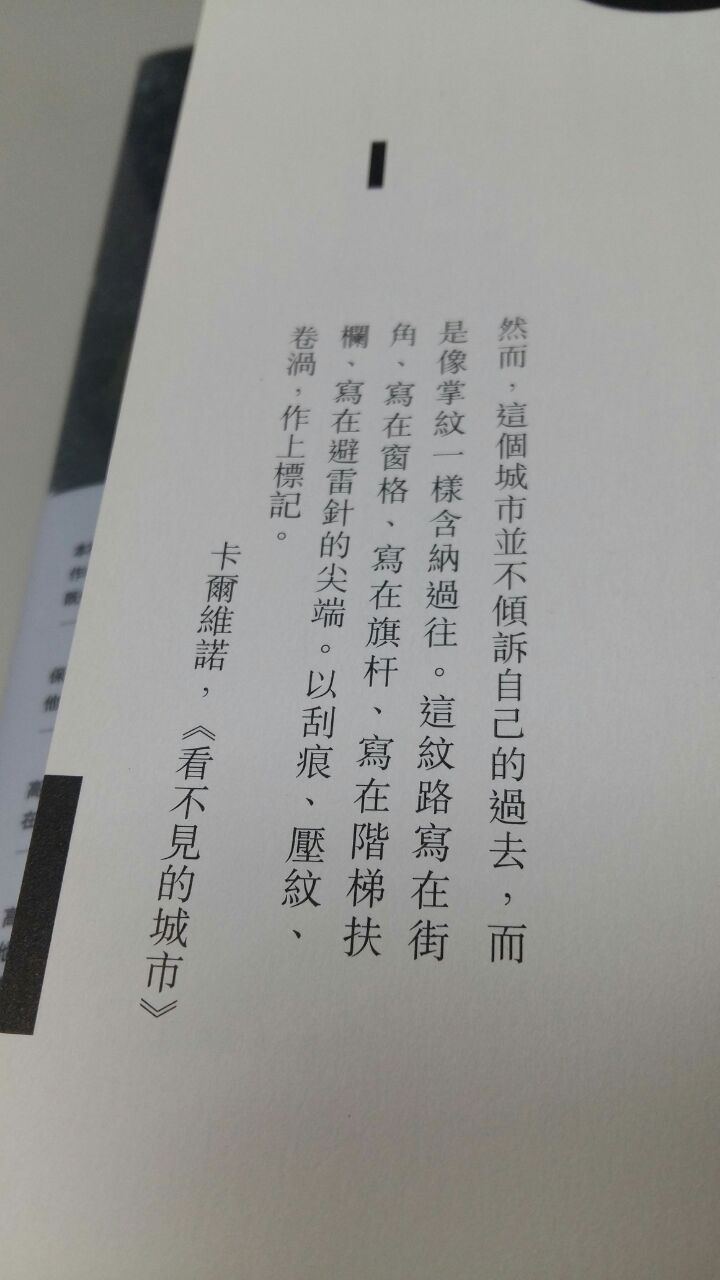 然而，這個城市並不傾訴自己的過去，而
是像掌紋一樣含納過往。這紋路寫在街
角、寫在窗格、寫在旗杆、寫在階梯扶
欄、寫在避雷針的尖端。以刮痕、壓紋、
卷渦，作上標記。
卡爾維諾，《看不見的城市》